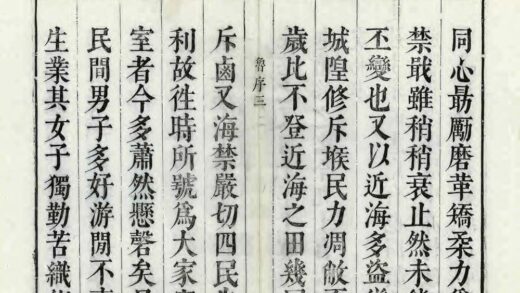 同心朂勵磨革矯柔力
禁戢雖稍稍衰止然未
丕變也又以近海多盜
城隍修斥堠民力凋敝
歲比不登近海之田幾
魯序三
斥鹵又海禁嚴切四民
利故徃時所號爲大家
室者今多蕭然懸磬矣
民間男子多好游閒不
生業其女子獨勤苦織